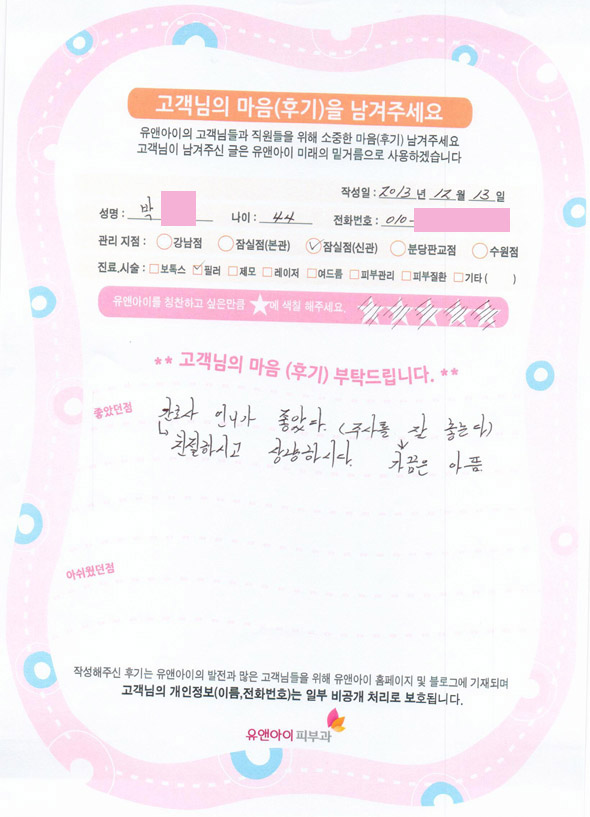 고객님의 마음(후기)을 남겨주세요
유앤아이의 고객님들과 직원들을 위해 소중한 마음(후기) 남겨주세요
고객님이 남겨주신 글은 유앤아이 미래의 밑거름으로 사용하겠습니다
작성일 : 2013 년 12 월 13 일
성명 : 박 나이 : 44 전화번호 : 010-
관리 지점 : 강남점 잠실점(본관) 잠실점(신관) 분당판교점 수원점
진료,시술 : 보톡스 필러 제모 레이저 여드름 피부관리 피부질환 기타 ( )
유앤아이를 칭찬하고 싶은만큼 ★에 색칠 해주세요.
** 고객님의 마음 (후기) 부탁드립니다. **
좋았던점 간호사 언니가 좋았다. (주사를 잘 놓는다)
친절하시고 상냥하시다. 가끔은 아픔
아쉬웠던점
작성해주신 후기는 유앤아이의 발전과 많은 고객님들을 위해 유앤아이 홈페이지 및 블로그에 기재되며
고객님의 개인정보(이름,전화번호)는 일부 비공개 처리로 보호됩니다.
유앤아이피부과